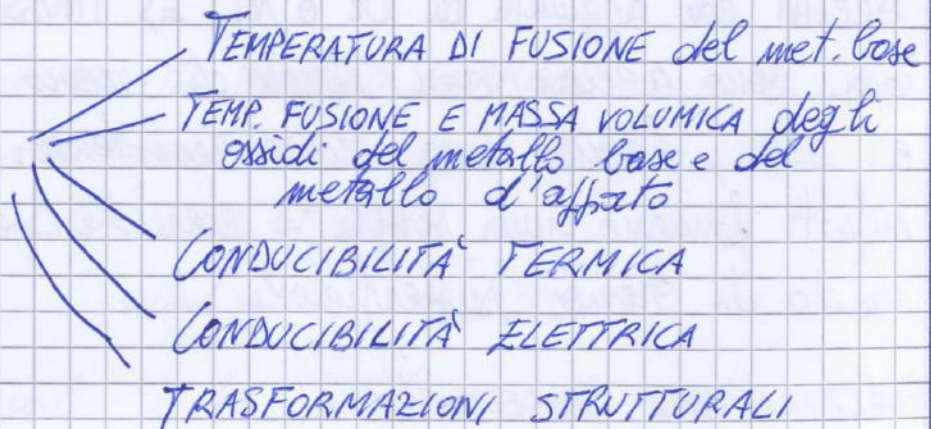 TEMPERATURA DI FUSIONE del met. base
TEMP. FUSIONE E MASSA VOLUMICA degli
ossidi del metallo base e del
metallo d'apporto
CONDUCIBILITÀ TERMICA
CONDUCIBILITÀ ELETTRICA
TRASFORMAZIONI STRUTTURALI